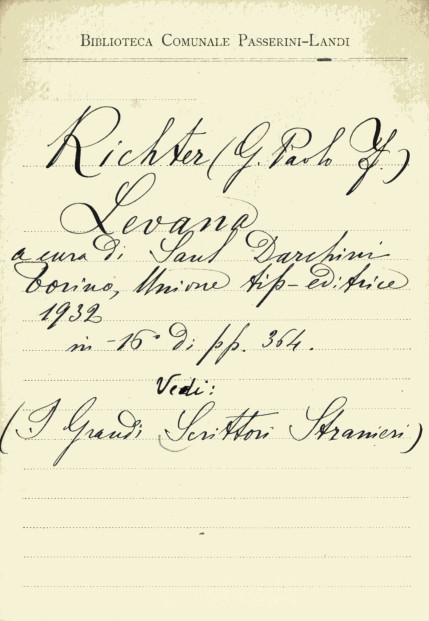 Biblioteca Comunale Passerini-Landi
Richter (G. Paolo F.)
Levana
a cura di Saul Darchini
Torino, Unione tip-editrice
1932
in -16° di pp. 364.
Vedi:
(I Grandi Scrittori Stranieri)